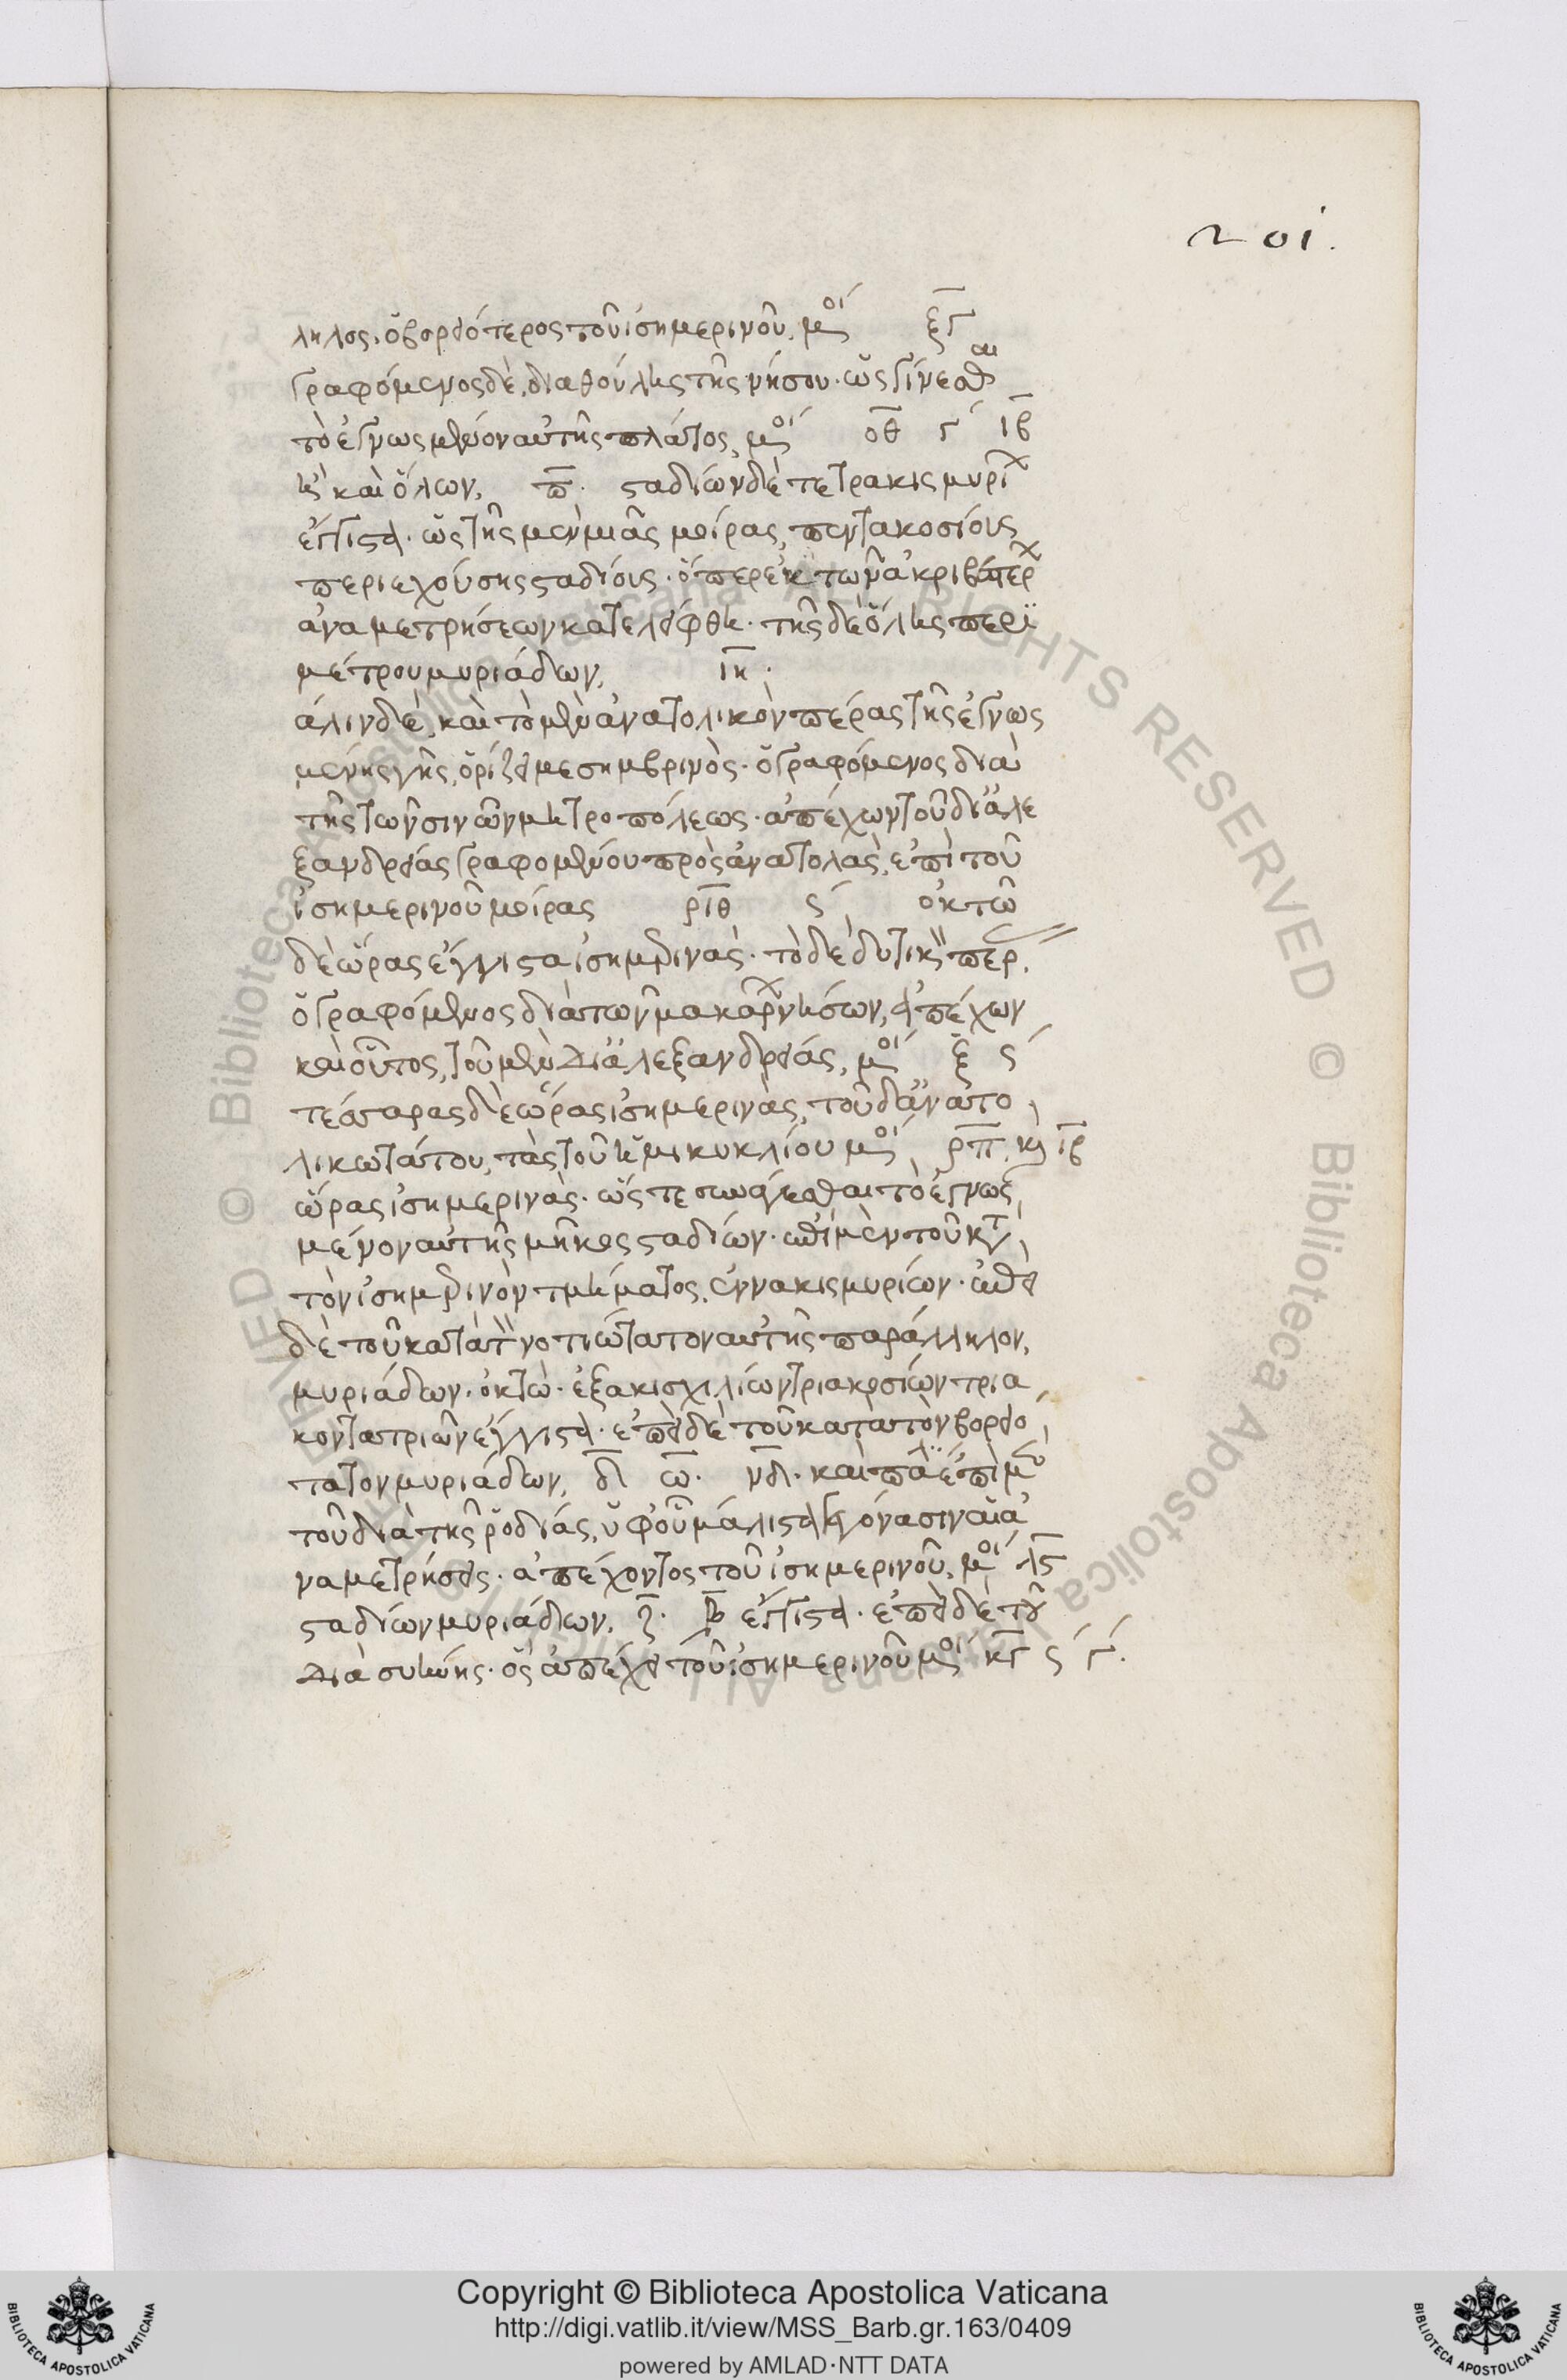 201.
λληλος, ὁ βορειότερος τοῦ ἰσημερινοῦ, μοί ξγ
γραφόμενος δὲ, διὰ θούλης τῆς νήσου· ὡς γίνεσθαι
τὸ ἐγνωσμένον αὐτῆς πλάτος, μοί οθ γ ιβ
ἢ καὶ ὅλων, π· σταδίων δὲ τετρακισμυρί
ἔγγιστα· ὡς τῆς μὲν μιᾶς μοίρας, πεντακοσίους
περιεχούσης σταδίους· ὅπερ ἐκ τῶν ἀκριβεστέρ
ἀναμετρήσεων κατελείφθη· τῆς δὲ ὅλης περι
μέτρου μυριάδων, ιη·
άλιν δὲ, καὶ τὸ μὲν ἀνατολικὸν πέρας τῆς ἐγνωσ
μένης γῆς, ὁρίζει μεσημβρινὸς· ὁ γραφόμενος διὰ
τῆς τῶν σινῶν μητροπόλεως· ἀπέχων τοῦ δι' ἀλε
ξανδρείας γραφομένου πρὸς ἀνατολὰς, ἐπὶ τοῦ
ἰσημερινοῦ μοίρας ριθ ς ὀκτὼ
δὲ ὥρας ἔγγιστα ἰσημερινάς· τὸ δὲ δυτικὸν περ.
ὁ γραφόμενος διὰ τῶν μακάρ νήσων, ἀπέχων
καὶ οὗτος, τοῦ μὲν δι' ἀλεξανδρείας, μοί ξ ς
τέσσαρας δὲ ὥρας ἰσημερινὰς, τοῦ δ' ἀνατο
λικωτάτου, τὰς τοῦ ἡμικυκλίου μοί, ρπ, καὶ ιβ
ὥρας ἰσημερινὰς· ὥστε συνάγεσθαι τὸ ἐγνωσ
μένον αὐτῆς μῆκος σταδίων· ἐπὶ μὲν τοῦ κατὰ
τὸν ἰσημερινὸν τμήματος, ἐννακισμυρίων· ἐπεὶ
δὲ τοῦ κατὰ τὸν νοτιώτατον αὐτῆς παράλληλον,
μυριάδων· ὀκτὼ· ἑξακισχιλίων τριακοσίων τρια
κοντατριῶν ἔγγιστα· ἐπεὶ δὲ τοῦ κατὰ τὸν βορειό
τατον μυριάδων, δ ω· νδ· καὶ πάλι ἐπὶ μὲν
τοῦ διὰ τῆς ῥοδίας, ὑφ' οὗ μάλιστα γεγόνασιν αἱ ἀ
ναμετρήσεις· ἀπέχοντος τοῦ ἰσημερινοῦ, μοί λς
σταδίων μυριάδων, ζ· β ἔγγιστα· ἐπεὶ δὲ τοῦ
διὰ συήνης· ὃς ἀπέχει τοῦ ἰσημερινοῦ μοί κγ ς γ.
Copyright © Biblioteca Apostolica Vaticana
http://digi.vatlib.it/view/MSS_Barb.gr.163/0409
powered by AMLAD·NTT DATA